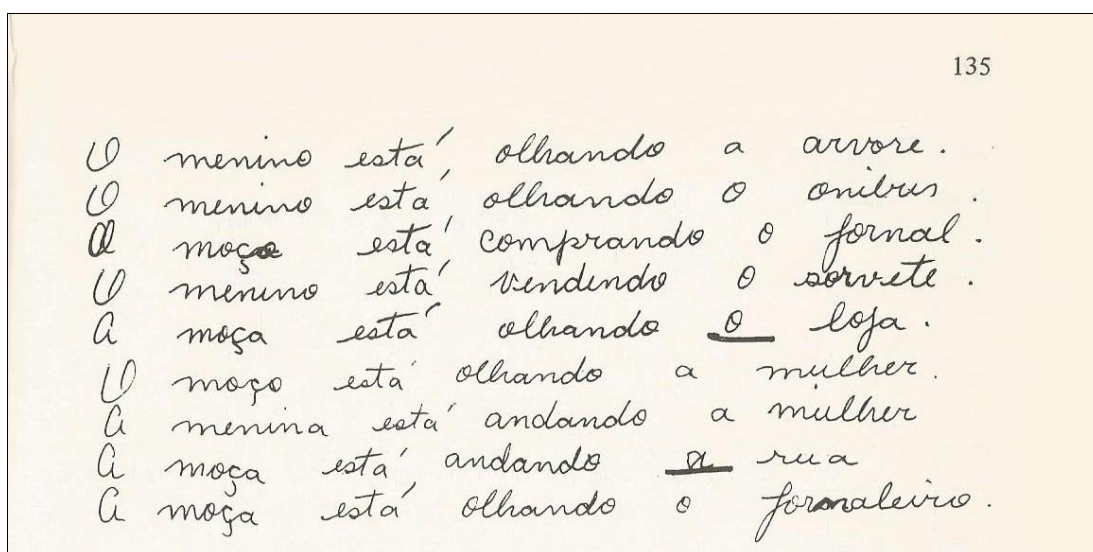 135
O menino está olhando a arvore.
O menino está olhando o onibus.
O moço está comprando o jornal.
O menino está vendendo o sorvete.
A moça está olhando o loja.
O moço está olhando a mulher.
A menina está andando a mulher
A moça está andando a rua
A moça está olhando o jornaleiro.